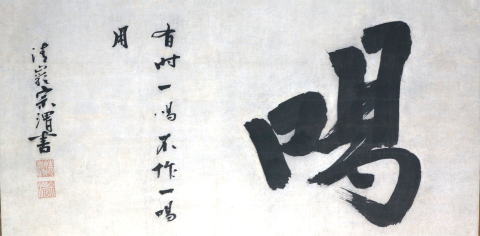 喝
有時一喝不作一喝
用
清巖宗渭書